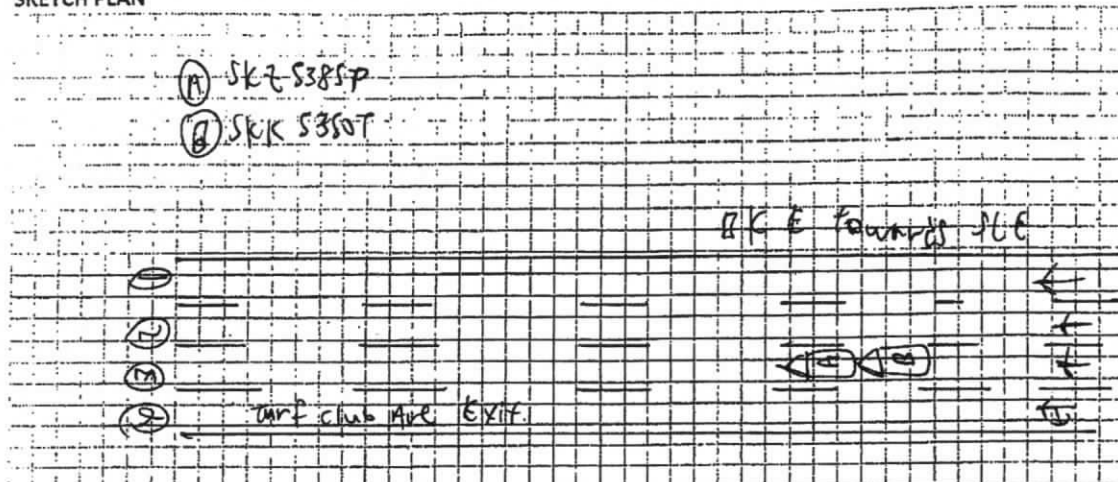 SKETCH PLAN
A SKZ 5385P
B SKK 5350T
BKE towards SLE
1
2
A B
3
4 Turf club Ave Exit.